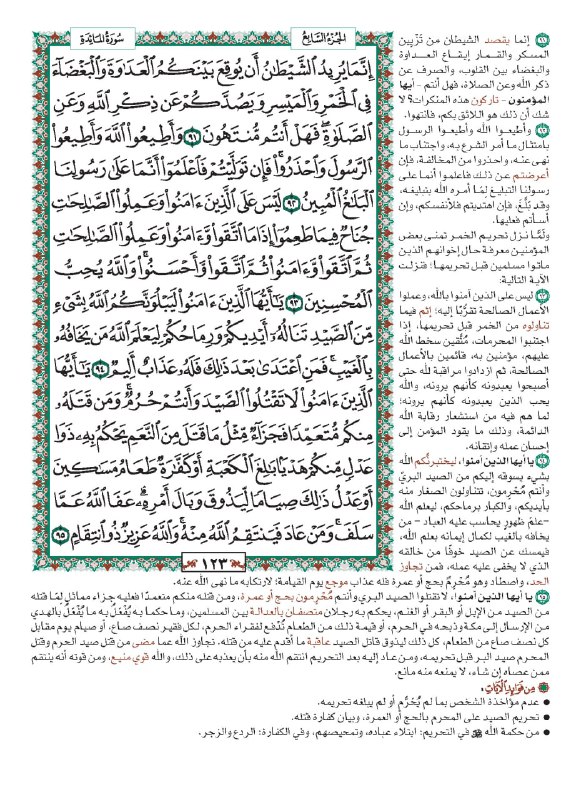 الجزء السابع
سورة المائدة
إِنَّمَا يُرِيدُ ٱلشَّيْطَٰنُ أَن يُوقِعَ بَيْنَكُمُ ٱلْعَدَٰوَةَ وَٱلْبَغْضَآءَ
فِى ٱلْخَمْرِ وَٱلْمَيْسِرِ وَيَصُدَّكُمْ عَن ذِكْرِ ٱللَّهِ وَعَنِ
ٱلصَّلَوٰةِۖ فَهَلْ أَنتُم مُّنتَهُونَ ٩١ وَأَطِيعُوا۟ ٱللَّهَ وَأَطِيعُوا۟
ٱلرَّسُولَ وَٱحْذَرُوا۟ۚ فَإِن تَوَلَّيْتُمْ فَٱعْلَمُوٓا۟ أَنَّمَا عَلَىٰ رَسُولِنَا
ٱلْبَلَٰغُ ٱلْمُبِينُ ٩٢ لَيْسَ عَلَى ٱلَّذِينَ ءَامَنُوا۟ وَعَمِلُوا۟ ٱلصَّٰلِحَٰتِ
جُنَاحٌ فِيمَا طَعِمُوٓا۟ إِذَا مَا ٱتَّقَوا۟ وَّءَامَنُوا۟ وَعَمِلُوا۟ ٱلصَّٰلِحَٰتِ
ثُمَّ ٱتَّقَوا۟ وَّءَامَنُوا۟ ثُمَّ ٱتَّقَوا۟ وَّأَحْسَنُوا۟ۗ وَٱللَّهُ يُحِبُّ
ٱلْمُحْسِنِينَ ٩٣ يَٰٓأَيُّهَا ٱلَّذِينَ ءَامَنُوا۟ لَيَبْلُوَنَّكُمُ ٱللَّهُ بِشَىْءٍ
مِّنَ ٱلصَّيْدِ تَنَالُهُۥٓ أَيْدِيكُمْ وَرِمَاحُكُمْ لِيَعْلَمَ ٱللَّهُ مَن يَخَافُهُۥ
بِٱلْغَيْبِۚ فَمَنِ ٱعْتَدَىٰ بَعْدَ ذَٰلِكَ فَلَهُۥ عَذَابٌ أَلِيمٌ ٩٤ يَٰٓأَيُّهَا
ٱلَّذِينَ ءَامَنُوا۟ لَا تَقْتُلُوا۟ ٱلصَّيْدَ وَأَنتُمْ حُرُمٌۚ وَمَن قَتَلَهُۥ
مِنكُم مُّتَعَمِّدًا فَجَزَآءٌ مِّثْلُ مَا قَتَلَ مِنَ ٱلنَّعَمِ يَحْكُمُ بِهِۦ ذَوَا
عَدْلٍ مِّنكُمْ هَدْيًۢا بَٰلِغَ ٱلْكَعْبَةِ أَوْ كَفَّٰرَةٌ طَعَامُ مَسَٰكِينَ
أَوْ عَدْلُ ذَٰلِكَ صِيَامًا لِّيَذُوقَ وَبَالَ أَمْرِهِۦۗ عَفَا ٱللَّهُ عَمَّا
سَلَفَۚ وَمَنْ عَادَ فَيَنتَقِمُ ٱللَّهُ مِنْهُۗ وَٱللَّهُ عَزِيزٌ ذُو ٱنتِقَامٍ ٩٥
١٢٣
٩١ إنما يقصد الشيطان من تَزْيِين
المسكر والقمار إيقاع العداوة
والبغضاء بين القلوب، والصرف عن
ذكر الله وعن الصلاة، فهل أنتم - أيها
المؤمنون - تاركون هذه المنكرات؟ لا
شك أن ذلك هو اللائق بكم، فانتهوا.
٩٢ وأطيعوا الله وأطيعوا الرسول
بامتثال ما أمر الشرع به، واجتناب ما
نهى عنه، واحذروا من المخالفة، فإن
أعرضتم عن ذلك فاعلموا أنما على
رسولنا التبليغ لِمَا أمره الله بتبليغه،
وقد بَلَّغ، فإن اهتديتم فلأنفسكم، وإن
أسأتم فعليها.
ولمَّا نزل تحريم الخمر تمنى بعض
المؤمنين معرفة حال إخوانهم الذين
ماتوا مسلمين قبل تحريمها؛ فنزلت
الآية التالية:
٩٣ ليس على الذين آمنوا بالله، وعملوا
الأعمال الصالحة تقرُّبًا إليه؛ إثم فيما
تناولوه من الخمر قبل تحريمها، إذا
اجتنبوا المحرمات، مُتَّقين سخط الله
عليهم، مؤمنين به، قائمين بالأعمال
الصالحة، ثم ازدادوا مراقبة لله حتى
أصبحوا يعبدونه كأنهم يرونه، والله
يحب الذين يعبدونه كأنهم يرونه؛
لما هم فيه من استشعار رقابة الله
الدائمة، وذلك ما يقود المؤمن إلى
إحسان عمله وإتقانه.
٩٤ يا أيها الذين آمنوا، ليختبرنَّكم الله
بشيء يسوقه إليكم من الصيد البريّ
وأنتم مُحْرِمون، تتناولون الصغار منه
بأيديكم، والكبار برماحكم، ليعلم الله
-علمَ ظهورٍ يحاسب عليه العباد - من
يخافه بالغيب لكمال إيمانه بعلم الله،
فيمسك عن الصيد خوفًا من خالقه
الذي لا يخفى عليه عمله، فمن تجاوز
الحد، واصطاد وهو مُحْرِمٌ بحج أو عمرة فله عذاب موجع يوم القيامة؛ لارتكابه ما نهى الله عنه.
٩٥ يا أيها الذين آمنوا، لا تقتلوا الصيد البري وأنتم مُحْرِمون بحج أو عمرة، ومن قتله منكم متعمدًا فعليه جزاء مماثل لِمَا قتله
من الصيد من الإبل أو البقر أو الغنم، يحكم به رجلان متصفان بالعدالة بين المسلمين، وما حكما به يُفْعَلُ به ما يُفْعَلُ بالهدي
من الإرسال إلى مكة وذبحه في الحرم، أو قيمة ذلك من الطعام تُدْفع لفقراء الحرم، لكل فقير نصف صاع، أو صيام يوم مقابل
كل نصف صاع من الطعام، كل ذلك ليذوق قاتل الصيد عاقبة ما أقدم عليه من قتله. تجاوز الله عما مضى من قتل صيد الحرم وقتل
المحرم صيد البر قبل تحريمه، ومن عاد إليه بعد التحريم انتقم الله منه بأن يعذبه على ذلك، والله قوي منيع، ومن قوته أنه ينتقم
ممن عصاه إن شاء، لا يمنعه منه مانع.
مِن فَوَائِدِ الآيَاتِ:
• عدم مؤاخذة الشخص بما لم يُحَرَّم أو لم يبلغه تحريمه.
• تحريم الصيد على المحرم بالحج أو العمرة، وبيان كفارة قتله.
• من حكمة الله ﷻ في التحريم: ابتلاء عباده، وتمحيصهم، وفي الكفارة: الردع والزجر.